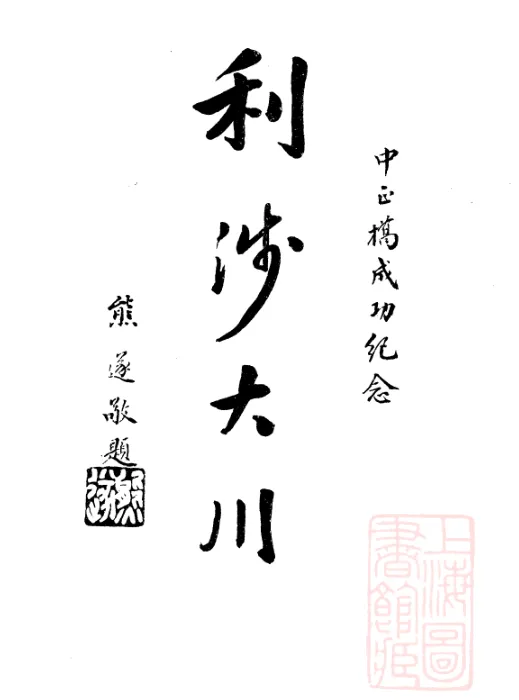 中正橋成功紀念
利涉大川
熊遂敬題
熊遂
上海圖書館藏